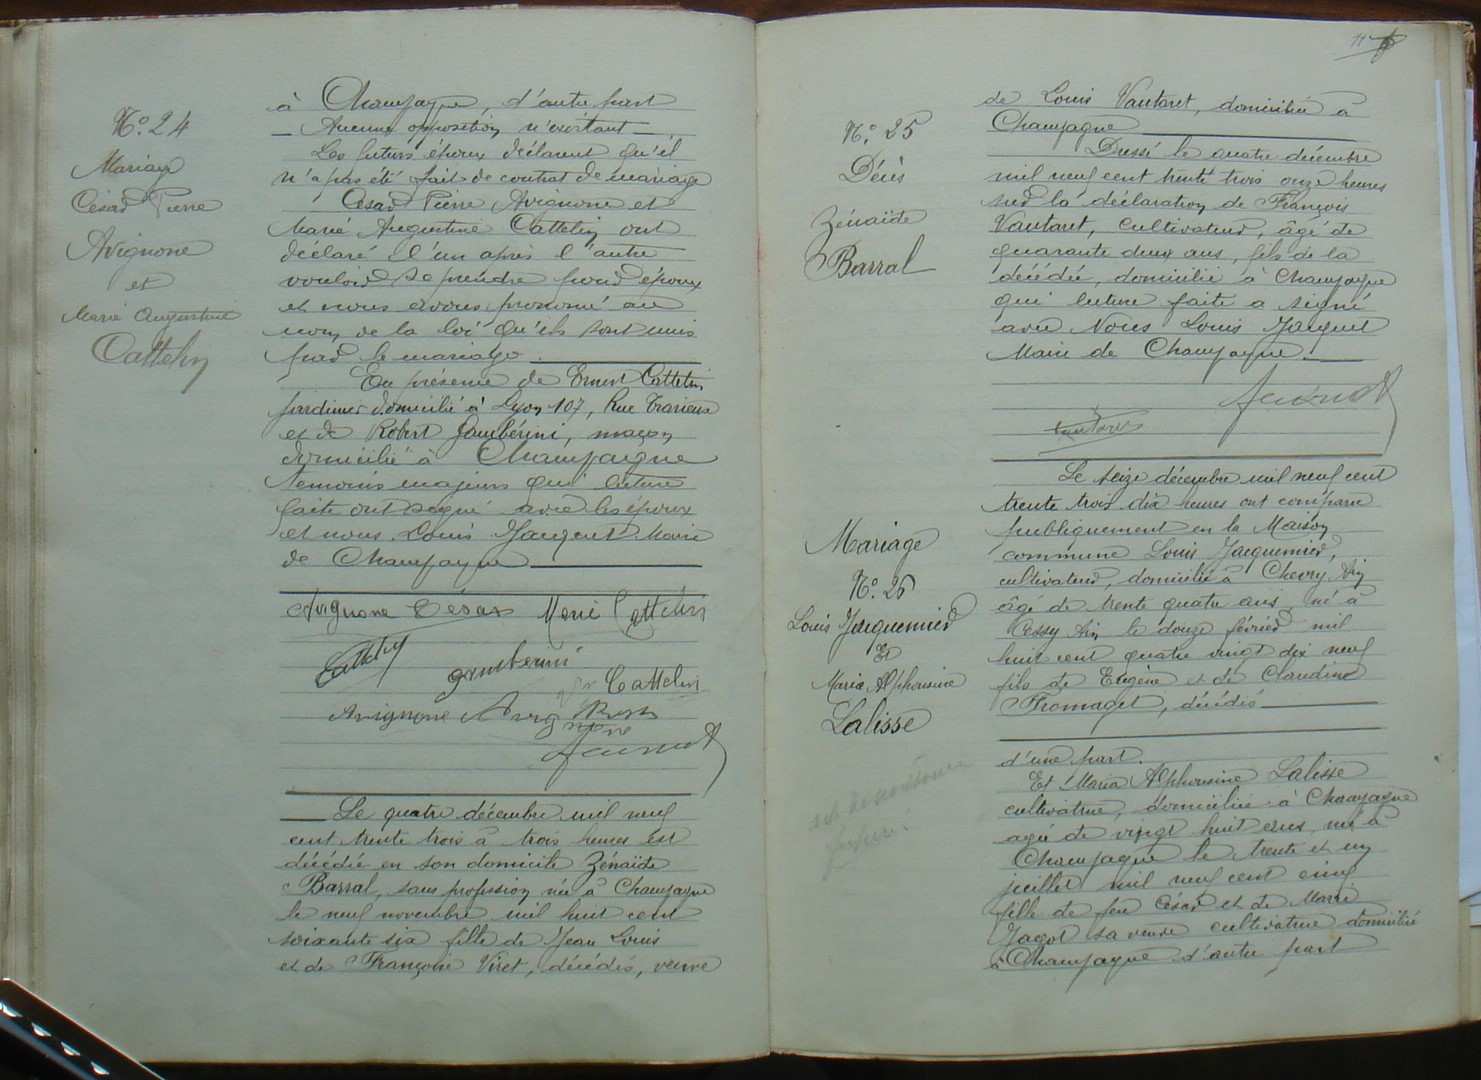 N° 24
Mariage
César Pierre
Avignone
et
Marie Augustine
Cattelin
à Champagne, d'autre part
Aucune opposition n'existant
Les futurs époux déclarent qu'il
n'a pas été fait de contrat de mariage
César Pierre Avignone et
Marie Augustine Cattelin ont
déclaré l'un après l'autre
vouloir se prendre pour époux
et nous avons prononcé au
nom de la loi qu'ils sont unis
par le mariage
En présence de Ernest Cattelin
jardinier domicilié à Lyon 107, Rue
et de Robert Gambérini, maçon
domicilié à Champagne
témoins majeurs qui lecture
faite ont signé avec les époux
et nous Louis Jacquet Maire
de Champagne
Avignone César Marie Cattelin
Cattelin
gamberini
Cattelin
Avignone
Le quatre décembre mil neuf
cent trente trois à trois heures est
décédée en son domicile Zénaïde
Barral, sans profession née à Champagne
le neuf novembre mil huit cent
soixante six fille de Jean Louis
et de Françoise Viret, décédés, veuve
11
N° 25
Décès
Zénaïde
Barral
de Louis Vautaret, domiciliée à
Champagne
Dressé le quatre décembre
mil neuf cent trente trois onze heures
sur la déclaration de François
Vautaret, cultivateur, âgé de
quarante deux ans, fils de la
décédée, domicilié à Champagne
qui lecture faite a signé
avec Nous Louis Jacquet
Maire de Champagne
Vautaret
Mariage
N° 26
Louis Jacquemier
Et
Maria Alphonsine
Lalisse
Le seize décembre mil neuf cent
trente trois dix heures ont comparu
publiquement en la Maison
commune Louis Jacquemier,
cultivateur, domicilié à Chevry Ain
âgé de trente quatre ans, né à
Cessy Ain le douze février mil
huit cent quatre vingt dix neuf
fils de Eugène et de Claudine
Fromaget, décédés
d'une part.
Et Maria Alphonsine Lalisse
cultivatrice, domiciliée à Champagne
agée de vingt huit ans, née à
Champagne le trente et un
juillet mil neuf cent cinq
fille de feu César et de Marie
Jagot sa veuve cultivatrice domicilié
à Champagne d'autre part